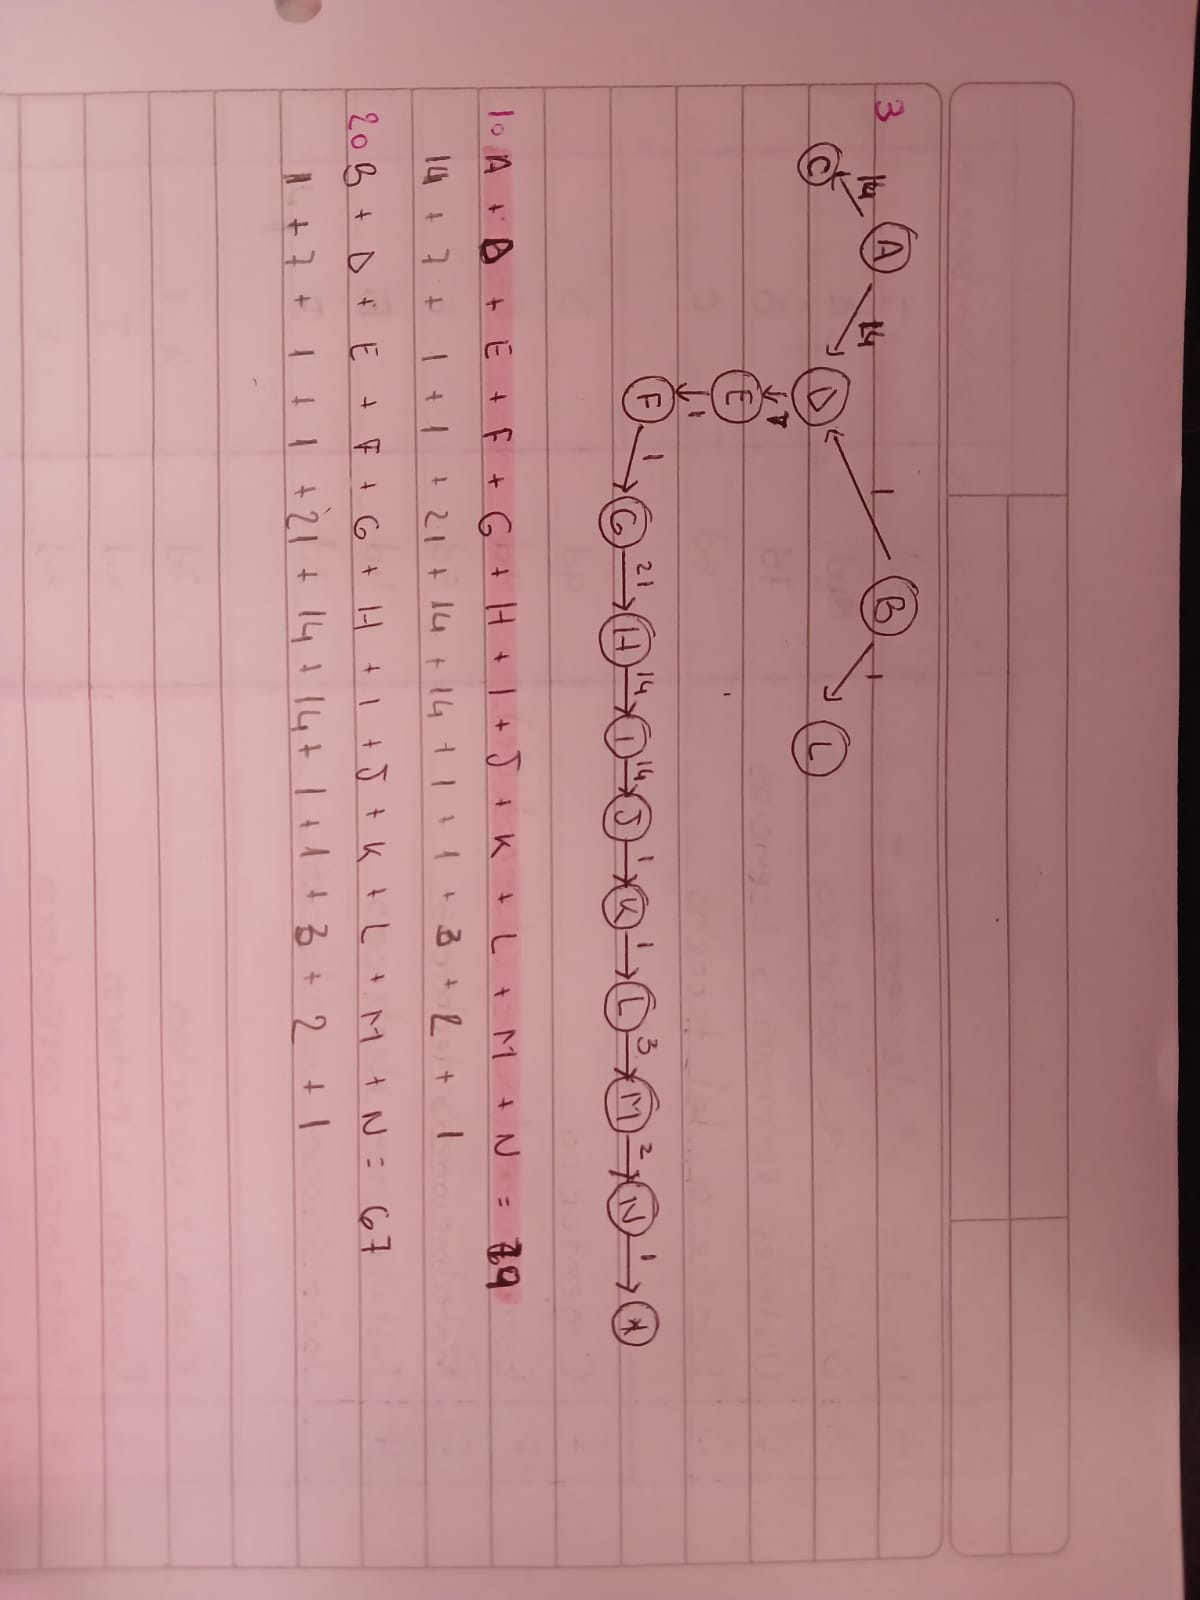 3
14 A 14 1 B 1
C D L
7
E
1
F 1 G 21 H 14 I 14 J 1 K 1 L 3 M 2 N 1 *
1. A + D + E + F + G + H + I + J + K + L + M + N =
14 + 7 + 1 + 1 + 21 + 14 + 14 + 1 + 1 + 3 + 2 + 1
2. B + D + E + F + G + H + I + J + K + L + M + N = 67
1 + 7 + 1 + 1 + 21 + 14 + 14 + 1 + 1 + 3 + 2 + 1